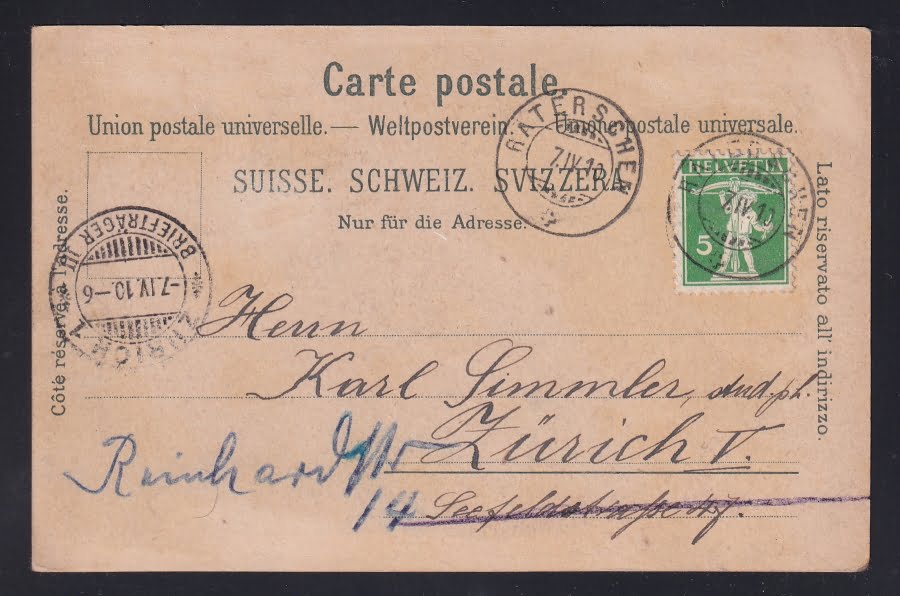 Carte postale.
Union postale universelle. — Weltpostverein. — Unione postale universale.
SUISSE. SCHWEIZ. SVIZZERA.
Nur für die Adresse.
Côté réservé à l'adresse.
Lato riservato all' indirizzo.
RÄTERSCHEN
7.IV.10
HELVETIA
5
RÄTERSCHEN
7.IV.10
BRIEFTRÄGER III
-7.IV.10.-6
ZÜRICH
Herrn
Karl Simmler, stud. ph.
Zürich V.
Reinhardstr
14
Seefeldstraße 47.